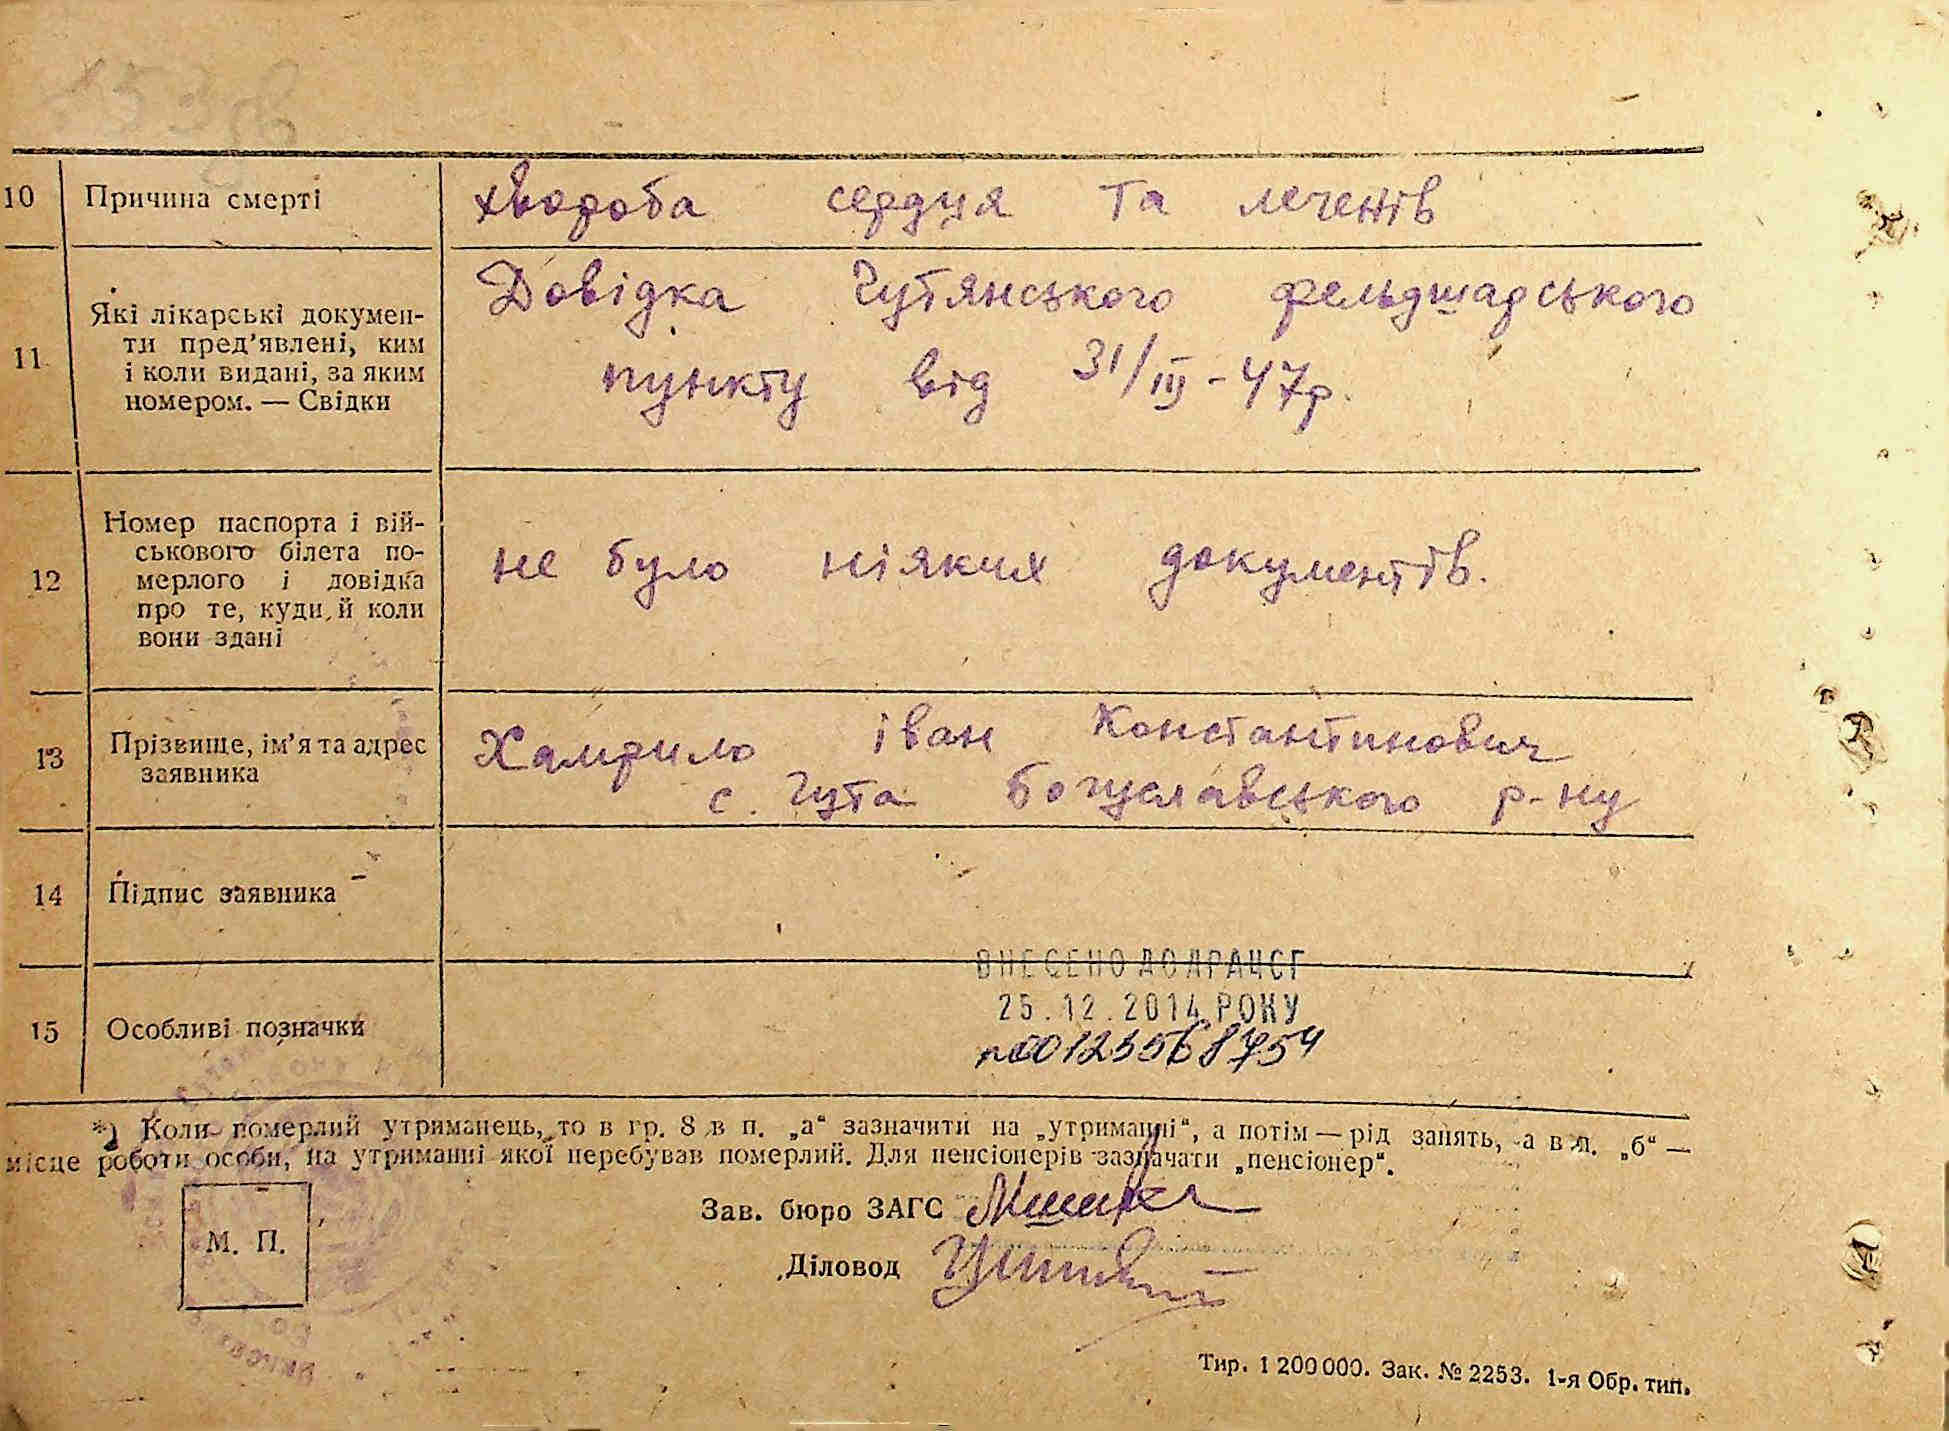 10 Причина смерті хвороба сердця та леченів
11 Які лікарські докумен-
ти пред'явлені, ким
і коли видані, за яким
номером. — Свідки
Довідка Гутянського фельдшарського
пункту від 31/III - 47р.
12 Номер паспорта і вій-
ськового білета по-
мерлого і довідка
про те, куди й коли
вони здані
не було ніяких документів.
13 Прізвище, ім'я та адрес
заявника
Хамрило Іван Константинович
с. Гута Богуславського р-ну
14 Підпис заявника
15 Особливі позначки
ВНЕСЕНО ДО ДРАЦСГ
25.12.2014 РОКУ
*) Коли померлий утриманець, то в гр. 8 в п. „а“ зазначити на „утриманні“, а потім — рід занять, а в п. „б“ —
місце роботи особи, на утриманні якої перебував померлий. Для пенсіонерів зазначати „пенсіонер“.
М. П.
Зав. бюро ЗАГС
Діловод
Тир. 1 200 000. Зак. № 2253. 1-я Обр. тип.